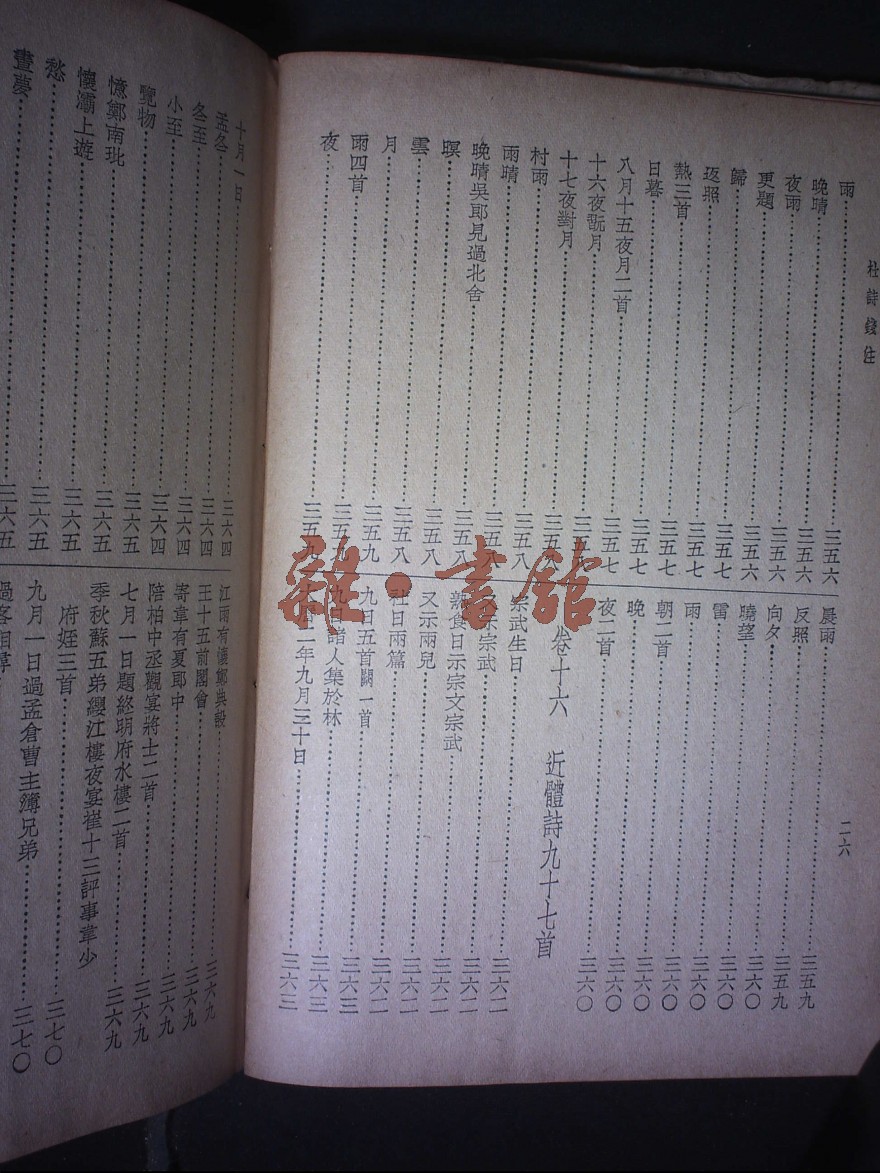 杜詩錢注
二六
雨三五六
晚晴三五六
夜雨三五六
更題三五六
歸三五六
返照三五七
熱三首三五七
日暮三五七
八月十五夜月二首三五七
十六夜翫月三五八
十七夜對月三五八
村雨三五八
雨晴三五八
晚晴吳郎見過北舍三五八
暝三五八
雲三五八
月三五八
雨四首三五九
夜三五九
三五九
晨雨三五九
反照三五九
向夕三五九
曉望三六〇
雷三六〇
雨三六〇
朝二首三六〇
晚三六〇
夜二首三六〇
卷十六 近體詩九十七首
宗武生日三六二
示宗武三六二
熟食日示宗文宗武三六二
又示兩兒三六二
社日兩篇三六二
九日五首闕一首三六二
九日諸人集於林三六三
大曆二年九月三十日三六三
十月一日三六四
孟冬三六四
冬至三六四
小至三六四
覽物三六五
憶鄭南玭三六五
懷灞上遊三六五
愁三六五
晝夢三六五
江雨有懷鄭典設三六九
王十五前閣會三六九
寄韋有夏郎中三六九
陪柏中丞觀宴將士二首三六九
七月一日題終明府水樓二首三六九
季秋蘇五弟纓江樓夜宴崔十三評事韋少
府姪三首三七〇
九月一日過孟倉曹主簿兄弟三七〇
過客相尋
雜·書館